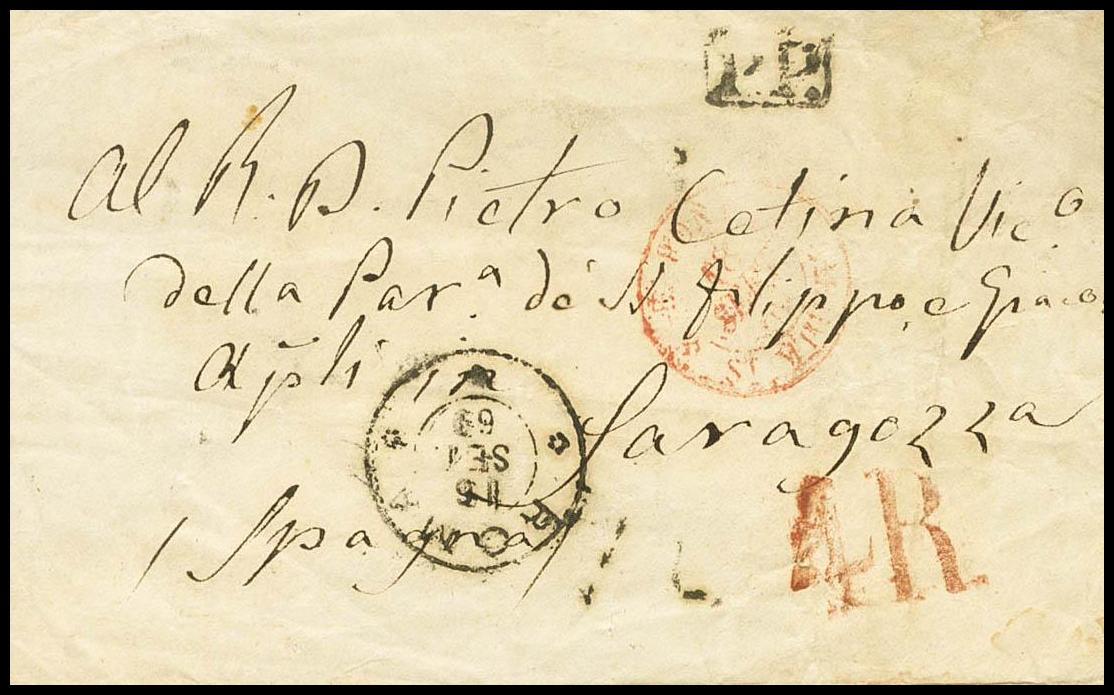 P.P.
Al R. D. Pietro Cetina Vic.º
della Par.ª de SS Filippo, e Giaco
Apli in
Saragozza
(Spagna)
ROMA
16
SET
69
4R